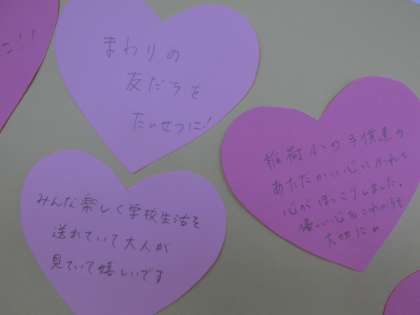 まわりの
友だちを
たいせつに!
稲荷小の子供達の
あたたかい心にふれて
心がほっこりしました。
優しい心をこれからも
大切にね
みんな楽しく学校生活を
送れていて大人が
見ていて嬉しいです